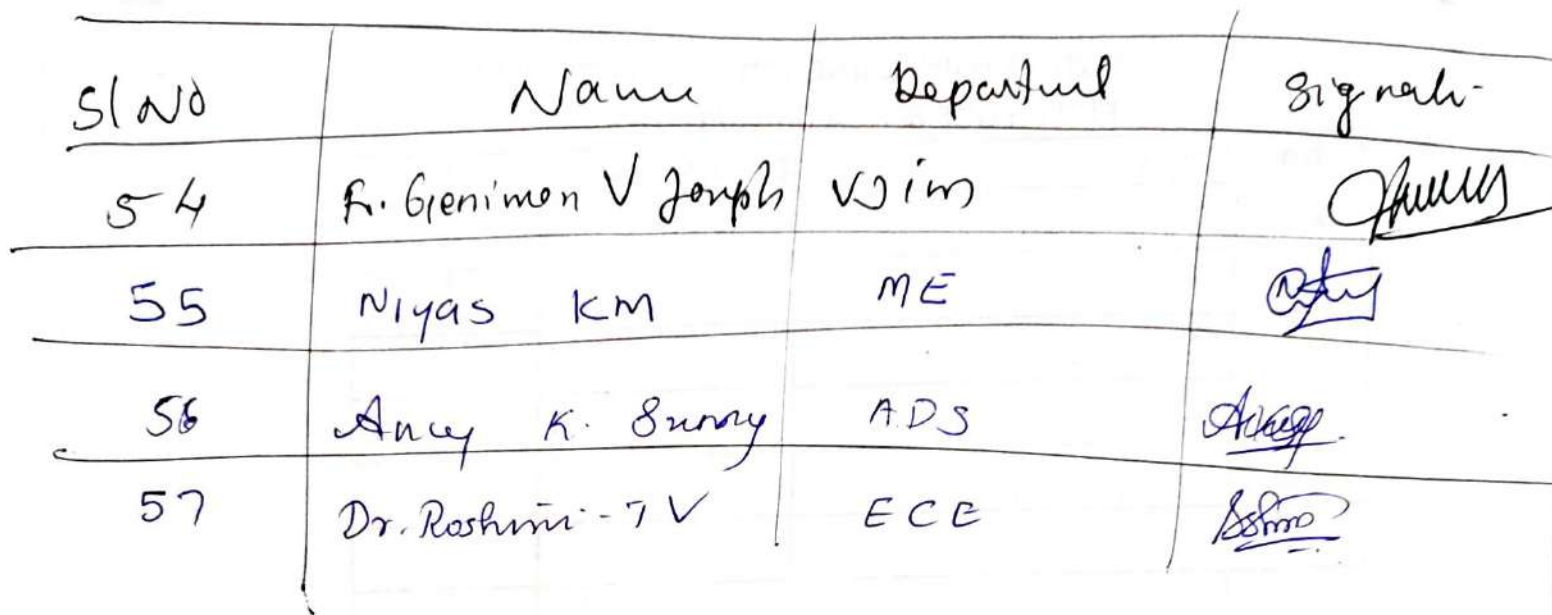 Sl No Name Department Signature
54 Fr. Genimon V Joseph VJim
55 Niyas KM ME
56 Ancy K. Sunny ADS
57 Dr. Roshini - T V ECE